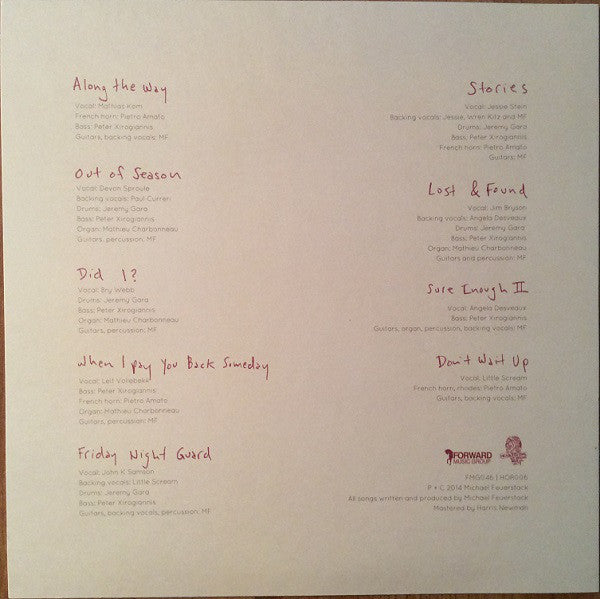 Along the Way
Vocal: Mathias Kom
French horn: Pietro Amato
Bass: Peter Xirogiannis
Guitars, backing vocals: MF
Out of Season
Vocal: Devon Sproule
Backing vocals: Paul Curreri
Drums: Jeremy Gara
Bass: Peter Xirogiannis
Organ: Mathieu Charbonneau
Guitars, percussion: MF
Did I?
Vocal: Bry Webb
Drums: Jeremy Gara
Bass: Peter Xirogiannis
Organ: Mathieu Charbonneau
Guitars, percussion: MF
When I Pay You Back Someday
Vocal: Leif Vollebekk
Bass: Peter Xirogiannis
French horn: Pietro Amato
Organ: Mathieu Charbonneau
Guitars, percussion: MF
Friday Night Guard
Vocal: John K Samson
Backing vocals: Little Scream
Drums: Jeremy Gara
Bass: Peter Xirogiannis
Guitars, backing vocals, percussion: MF
Stories
Vocal: Jessie Stein
Backing vocals: Jessie, Wren Kitz and MF
Drums: Jeremy Gara
Bass: Peter Xirogiannis
French horn: Pietro Amato
Guitars: MF
Lost & Found
Vocal: Jim Bryson
Backing vocals: Angela Desveaux
Drums: Jeremy Gara
Bass: Peter Xirogiannis
Organ: Mathieu Charbonneau
Guitars and percussion: MF
Sure Enough II
Vocal: Angela Desveaux
Bass: Peter Xirogiannis
Guitars, organ, percussion, backing vocals: MF
Don't Wait Up
Vocal: Little Scream
French horn, rhodes: Pietro Amato
Guitars, backing vocals: MF
FORWARD
MUSIC GROUP
FMG046 | HOR006
P + C 2014 Michael Feuerstack
All songs written and produced by Michael Feuerstack
Mastered by Harris Newman